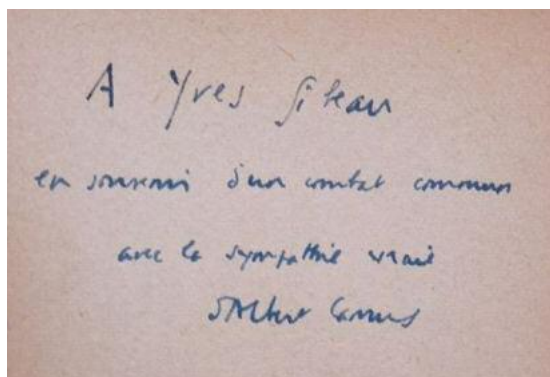 A Yves Giteau
en souvenir d'un combat commun
avec la sympathie vraie
d'Albert Camus